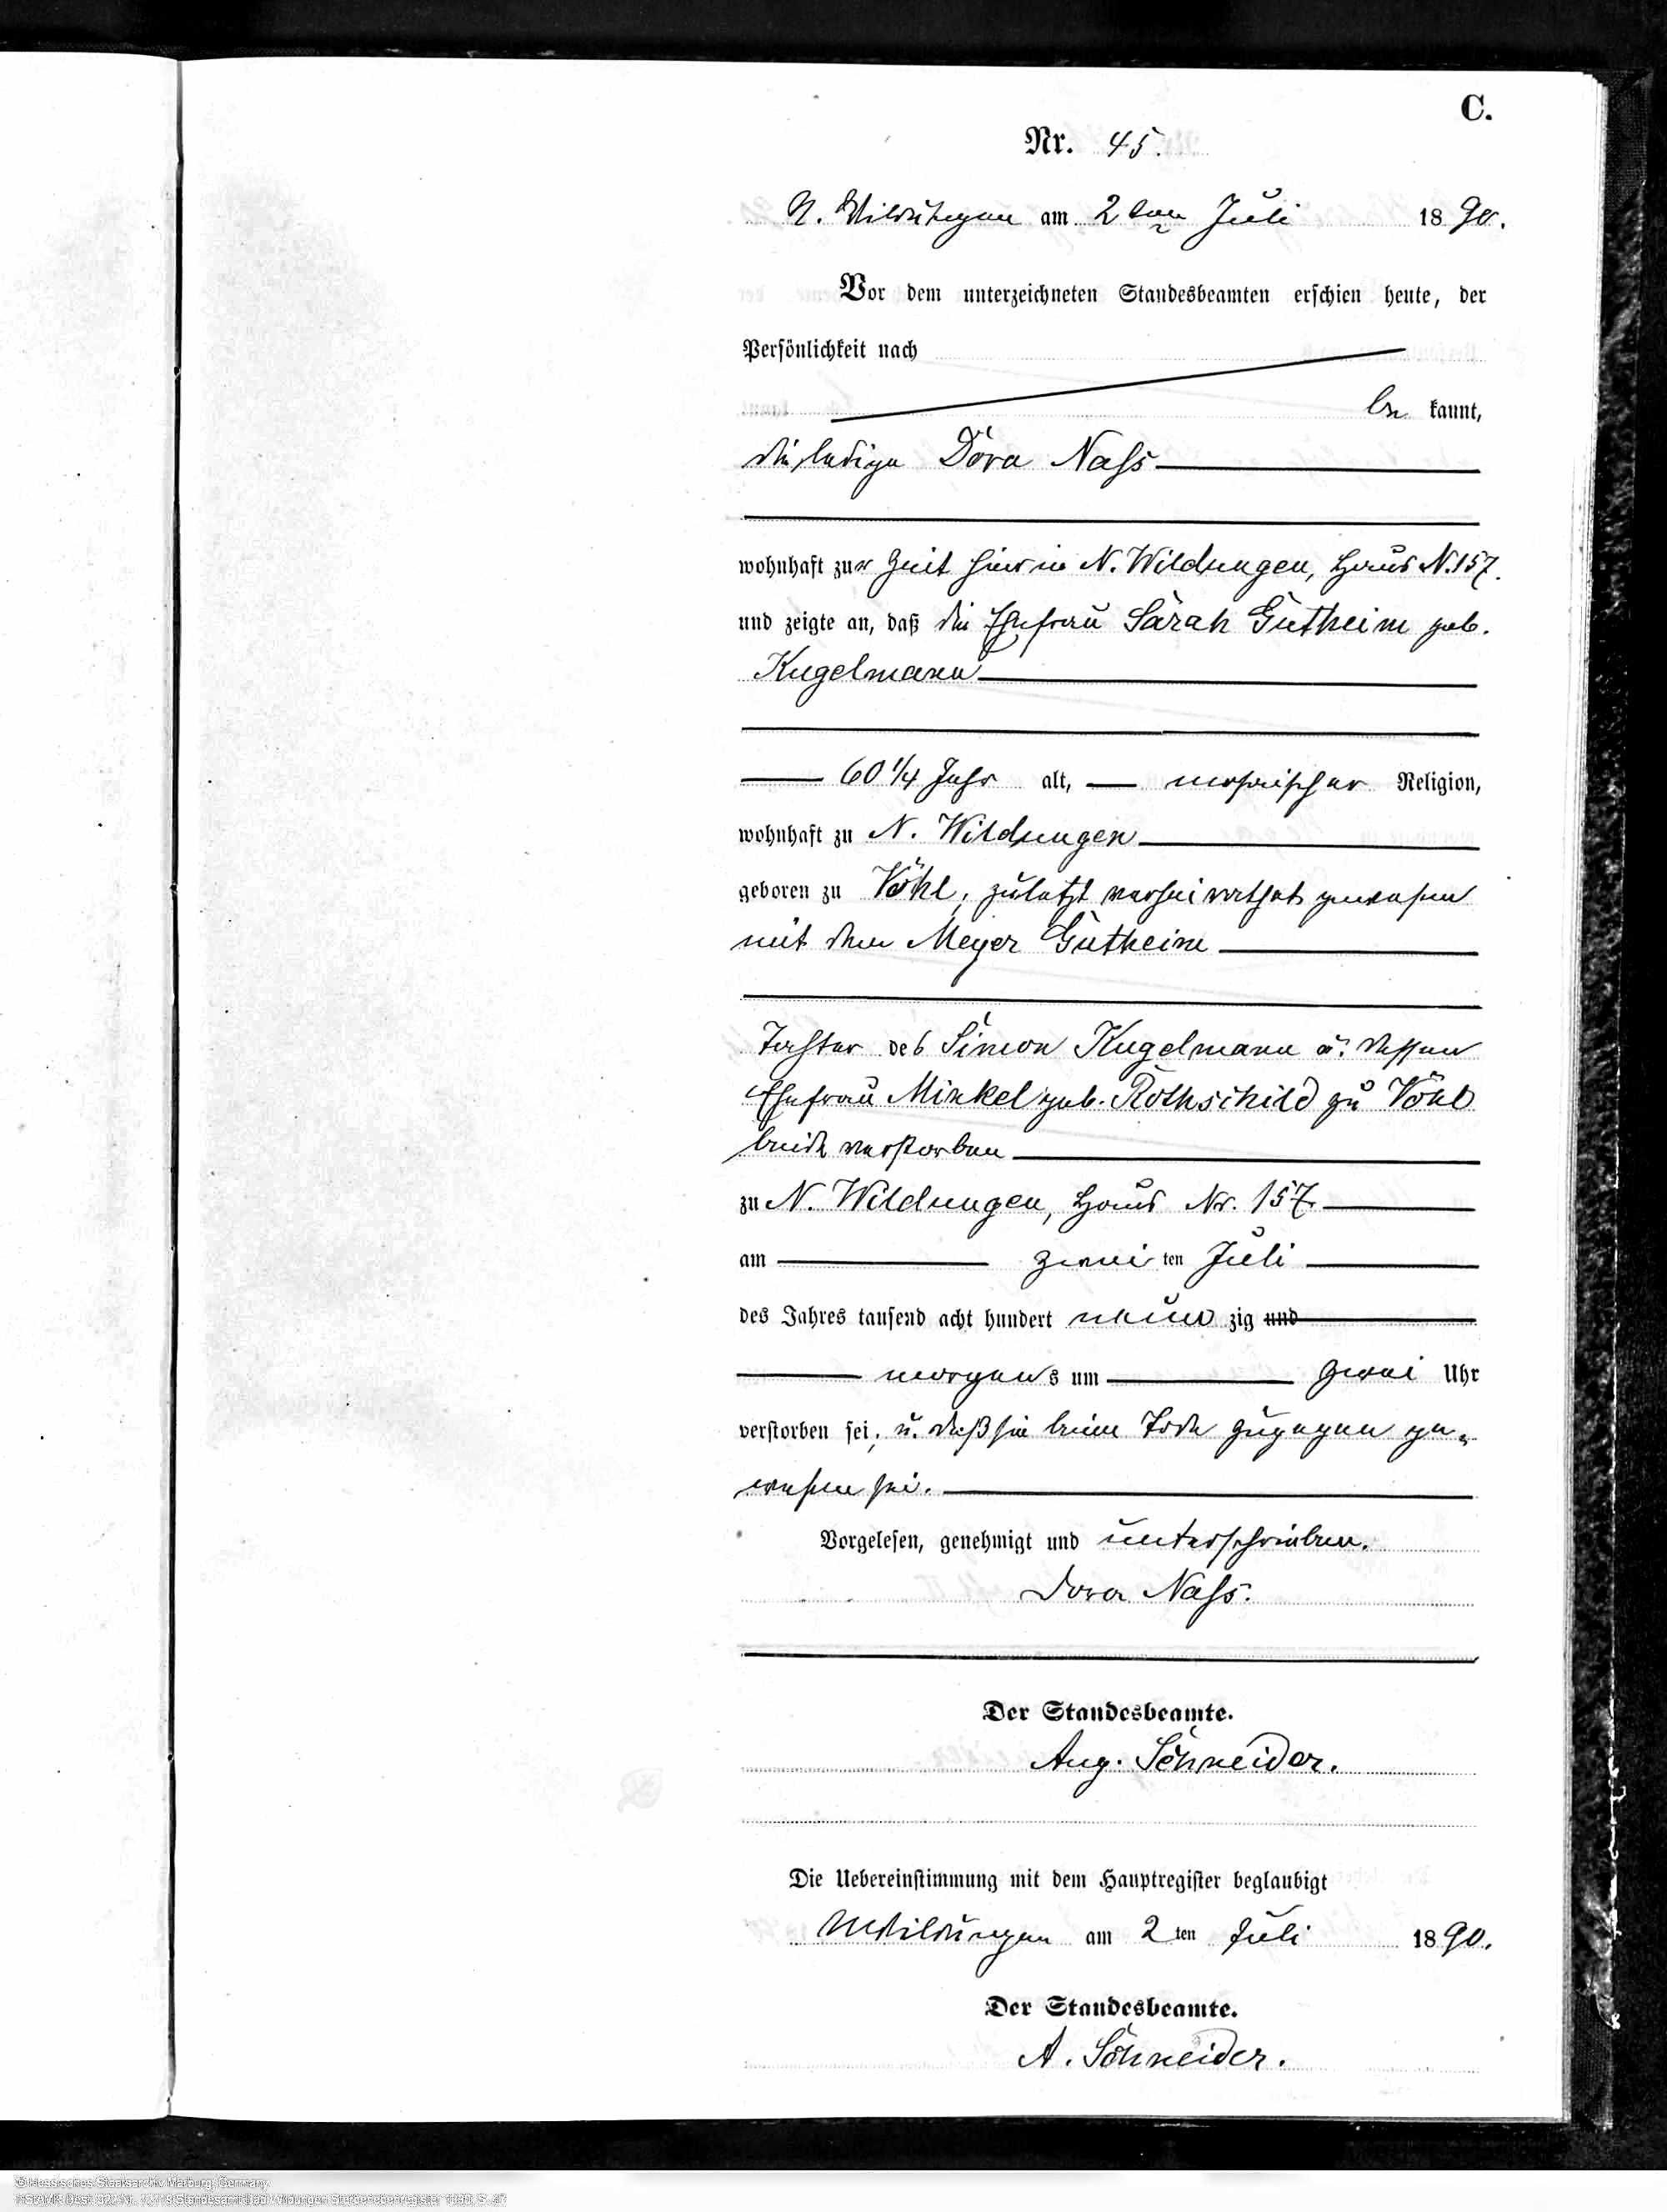 C.
Nr. 45.
N. Wildungen am 2ten Juli 1890.
Vor dem unterzeichneten Standesbeamten erschien heute, der
Persönlichkeit nach
be kannt,
die ledige Dora Nass
wohnhaft zur Zeit hier in N. Wildungen, Haus N. 157.
und zeigte an, daß die Ehefrau Sarah Gutheim geb.
Kugelmann
60 1/4 Jahr alt, mosaischer Religion,
wohnhaft zu N. Wildungen
geboren zu Vöhl, zuletzt verheirathet gewesen
mit dem Meyer Gutheim
Tochter des Simon Kugelmann u. dessen
Ehefrau Minkel geb. Rothschild zu Vöhl
beide verstorben
zu N. Wildungen, Haus Nr. 157.
am zwei ten Juli
des Jahres tausend acht hundert neun zig und
morgens um zwei Uhr
verstorben sei, u. daß sie beim Tode zugegen ge-
wesen sei.
Vorgelesen, genehmigt und unterschrieben.
Dora Nass.
Der Standesbeamte.
Aug. Schneider.
Die Uebereinstimmung mit dem Hauptregister beglaubigt
NWildungen am 2ten Juli 1890.
Der Standesbeamte.
A. Schneider.
© Hessisches Staatsarchiv Marburg, Germany